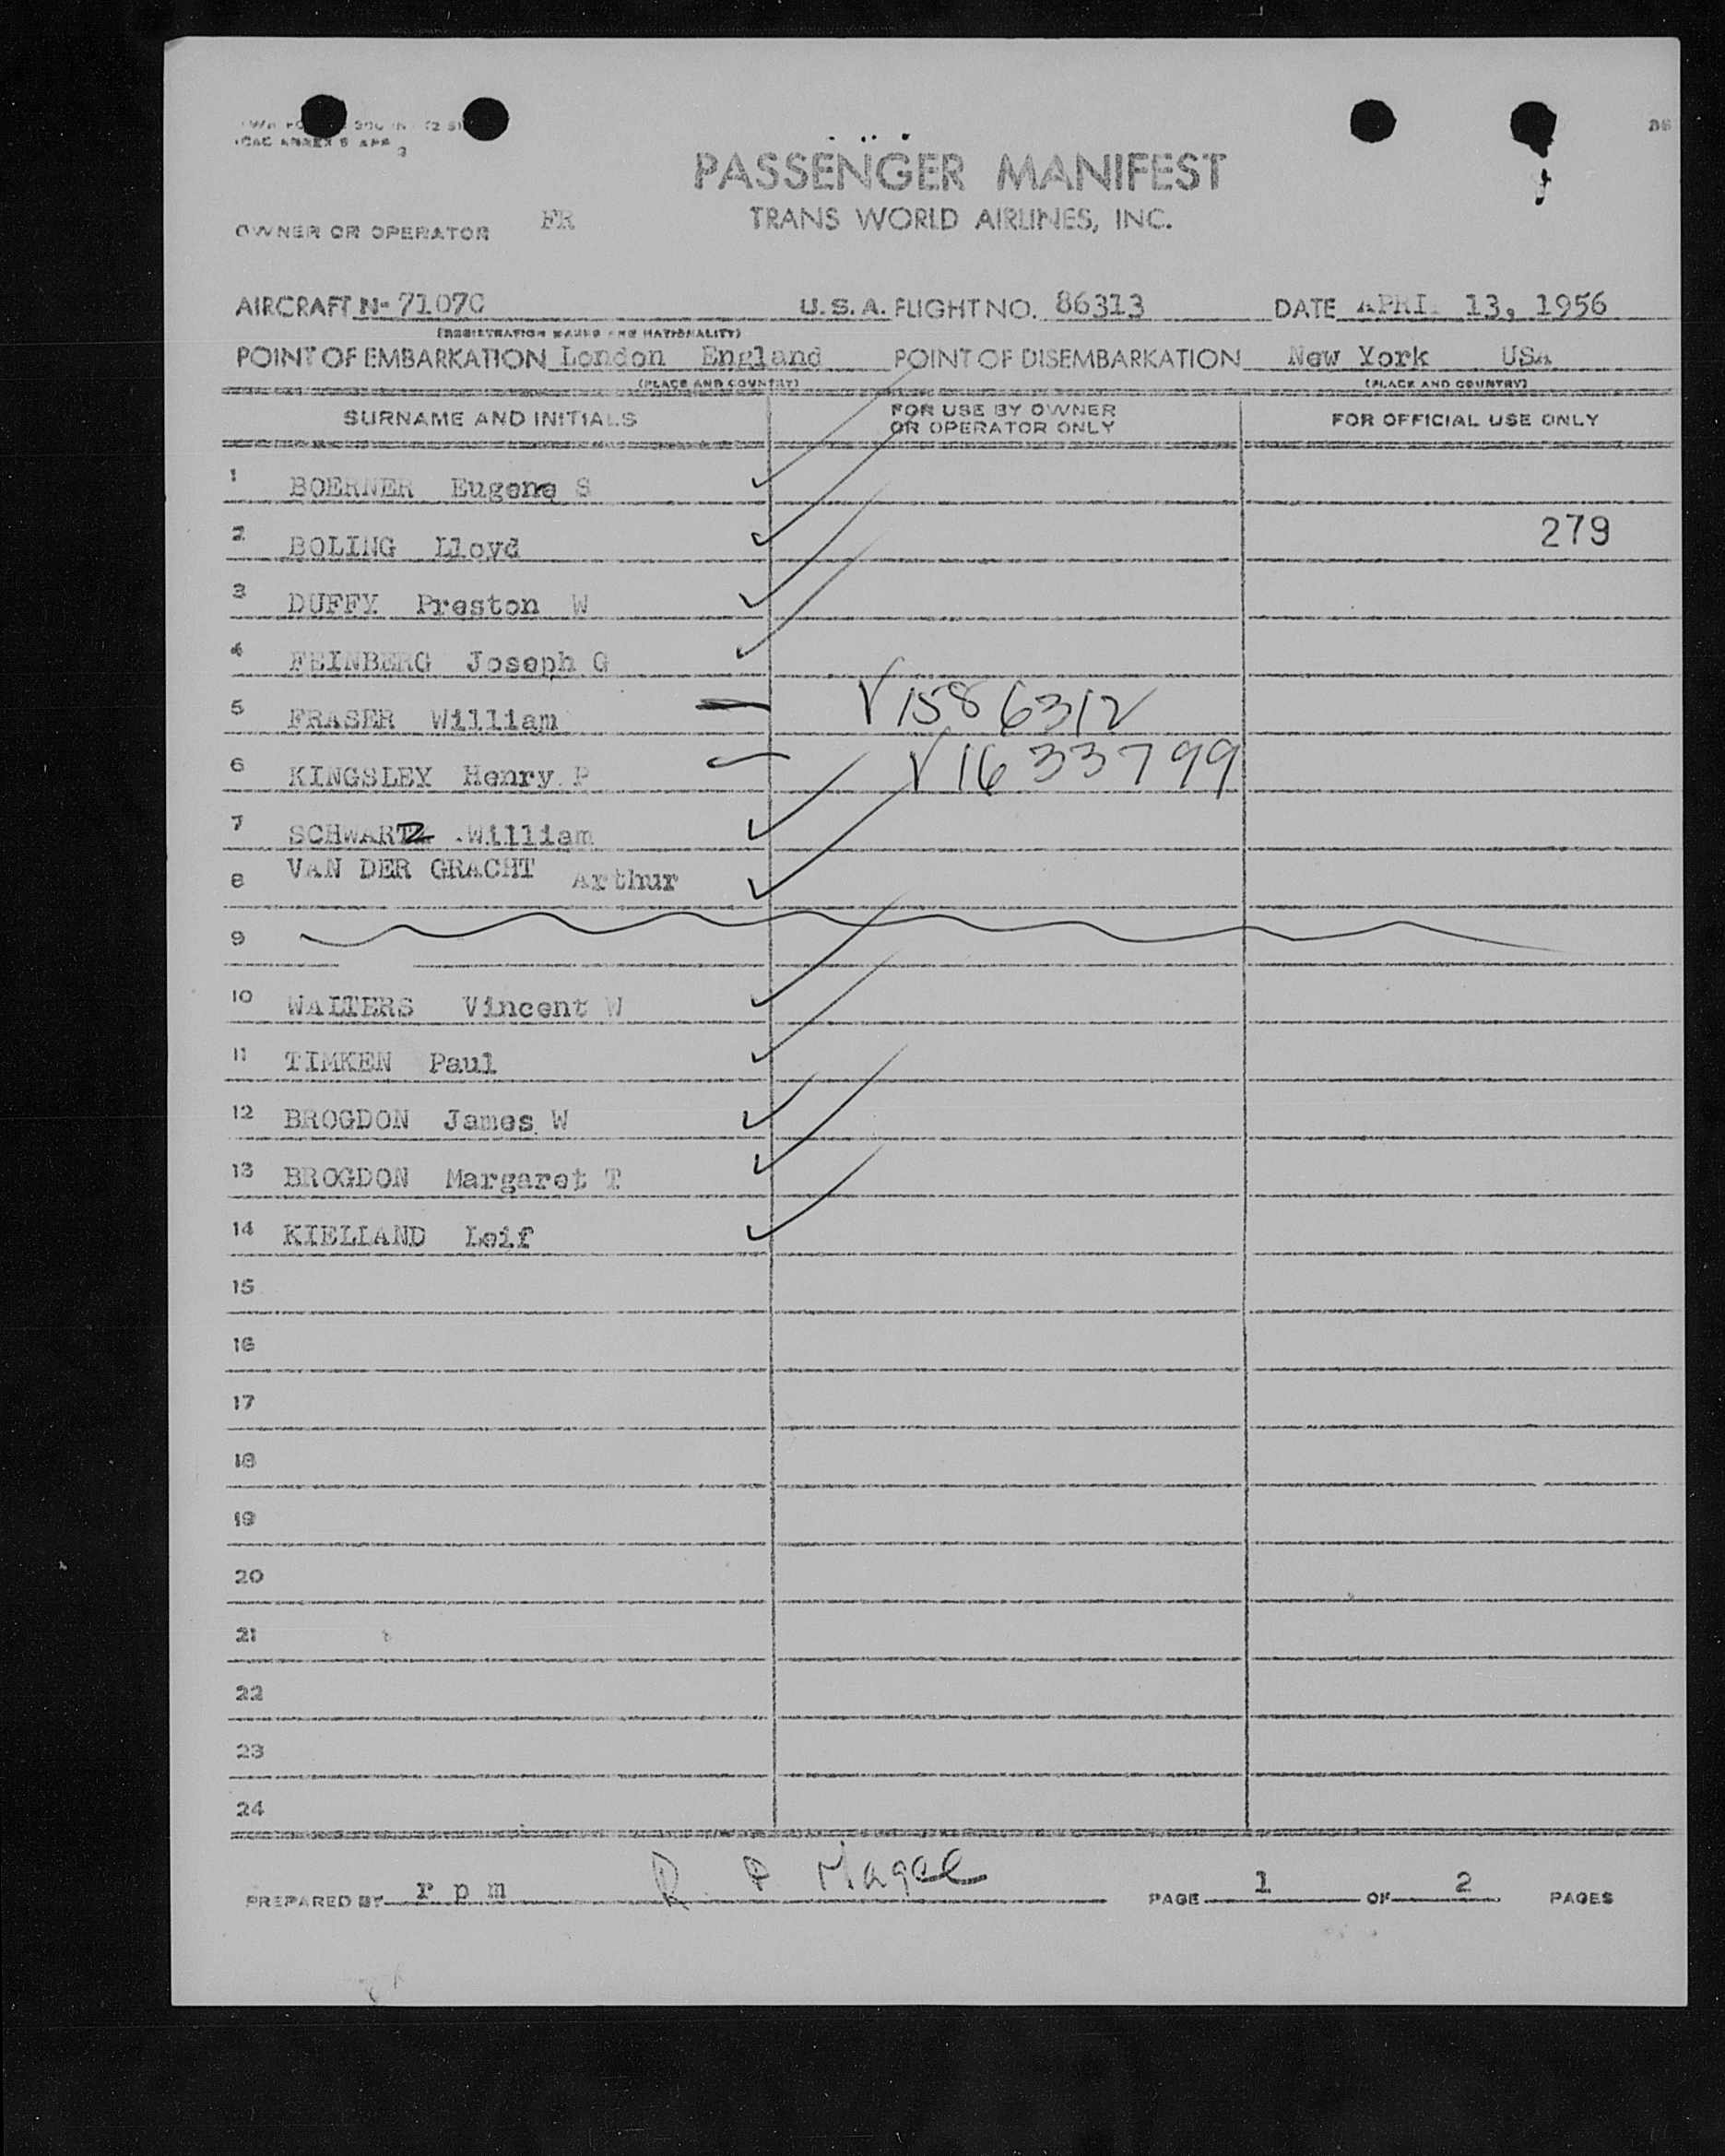 ICAO ANNEX 9 APP 3
PASSENGER MANIFEST
OWNER OR OPERATOR FR TRANS WORLD AIRLINES, INC.
AIRCRAFT N-7107C U.S.A. FLIGHT NO. 86313 DATE APRIL 13, 1956
(REGISTRATION MARKS AND NATIONALITY)
POINT OF EMBARKATION London England POINT OF DISEMBARKATION New York USA
(PLACE AND COUNTRY) (PLACE AND COUNTRY)
SURNAME AND INITIALS FOR USE BY OWNER OR OPERATOR ONLY FOR OFFICIAL USE ONLY
1 BOERNER Eugene S
2 BOLING Lloyd 279
3 DUFFY Preston W
4 FEINBERG Joseph G
5 FRASER William V1586312
6 KINGSLEY Henry P V1633799
7 SCHWARTZ William
8 VAN DER GRACHT Arthur
9
10 WALTERS Vincent W
11 TIMKEN Paul
12 BROGDON James W
13 BROGDON Margaret T
14 KIELLAND Leif
15
16
17
18
19
20
21
22
23
24
PREPARED BY r p m R P Magee PAGE 1 OF 2 PAGES